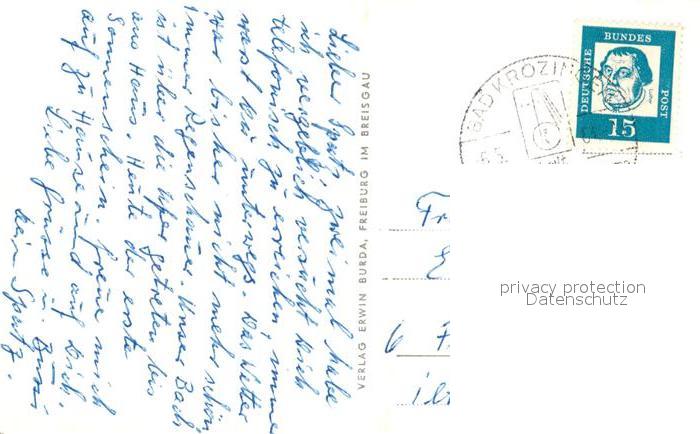 Lieber Spatz, zweimal habe
ich vergeblich versucht Dich
telefonisch zu erreichen, immer
warst Du unterwegs. Das Wetter
war bisher nicht mehr schön
immer Regenschauer. Unser Bach
ist über die Ufer getreten bis
ans Haus. Heute der erste
Sonnenschein. Freue mich
auf zu Hause und auf Dich.
Liebe Grüsse u. Bussi
Dein Spatz.
VERLAG ERWIN BURDA, FREIBURG IM BREISGAU
BAD KROZIN
DEUTSCHE BUNDES POST
15
Fr
6
privacy protection
Datenschutz